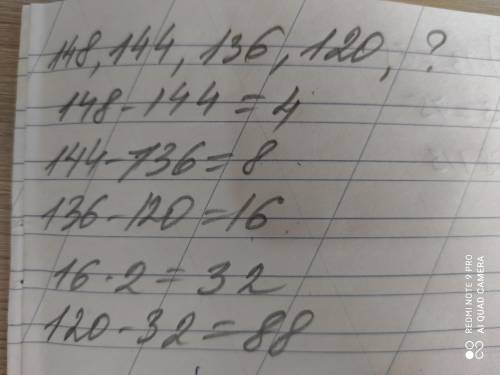 148, 144, 136, 120, ?
148-144=4
144-136=8
136-120=16
16·2=32
120-32=88
REDMI NOTE 9 PRO
AI QUAD CAMERA